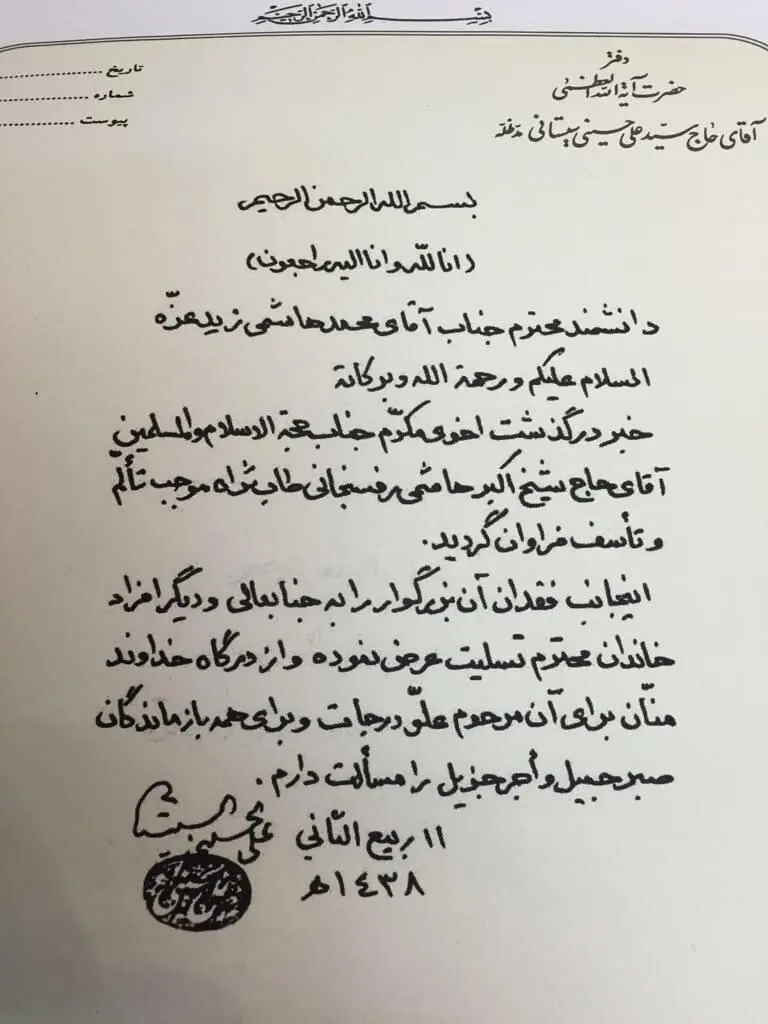 بسم الله الرحمن الرحیم
دفتر
حضرت آیة الله العظمی
آقای حاج سید علی حسینی سیستانی مدظله
تاریخ ....................
شماره ....................
پیوست ....................
بسم الله الرحمن الرحیم
(انا للّه و انا الیه راجعون)
دانشمند محترم جناب آقای محمد هاشمی زید عزّه
السلام علیکم ورحمة الله وبرکاته
خبر درگذشت اخوی مکرّم جناب حجة الاسلام والمسلمین
آقای حاج شیخ اکبر هاشمی رفسنجانی طاب ثراه موجب تألّم
و تأسف فراوان گردید.
اینجانب فقدان آن بزرگوار را به جنابعالی و دیگر افراد
خاندان محترم تسلیت عرض نموده و از درگاه خداوند
منّان برای آن مرحوم علوّ درجات و برای همه بازماندگان
صبر جمیل و أجر جزیل را مسألت دارم.
١١ ربیع الثّاني
١٤٣٨ هـ
علی الحسینی السیستانی